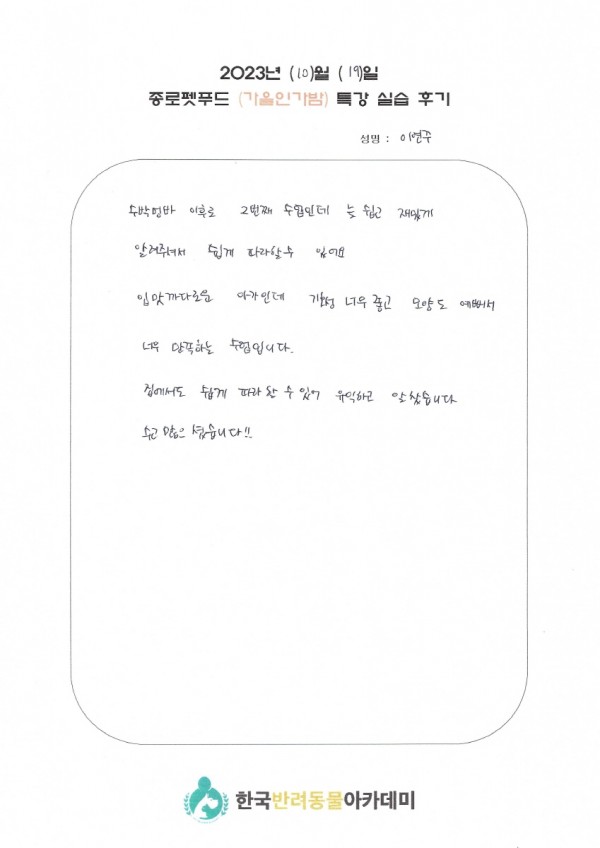 2023년 (10)월 (19)일
종로펫푸드 (가을인가밤) 특강 실습 후기
성명 : 이연주
수박먹바 이후로 2번째 수업인데 늦 쉽고 재밌게
알려주셔서 쉽게 따라할수 있어요
입맛까다로운 아가인데 기호성 너무 좋고 모양도 예뻐서
너무 만족하는 수업입니다.
집에서도 쉽게 따라할 수 있어 유익하고 알찼습니다
수고 많으셨습니다!!
한국반려동물아카데미